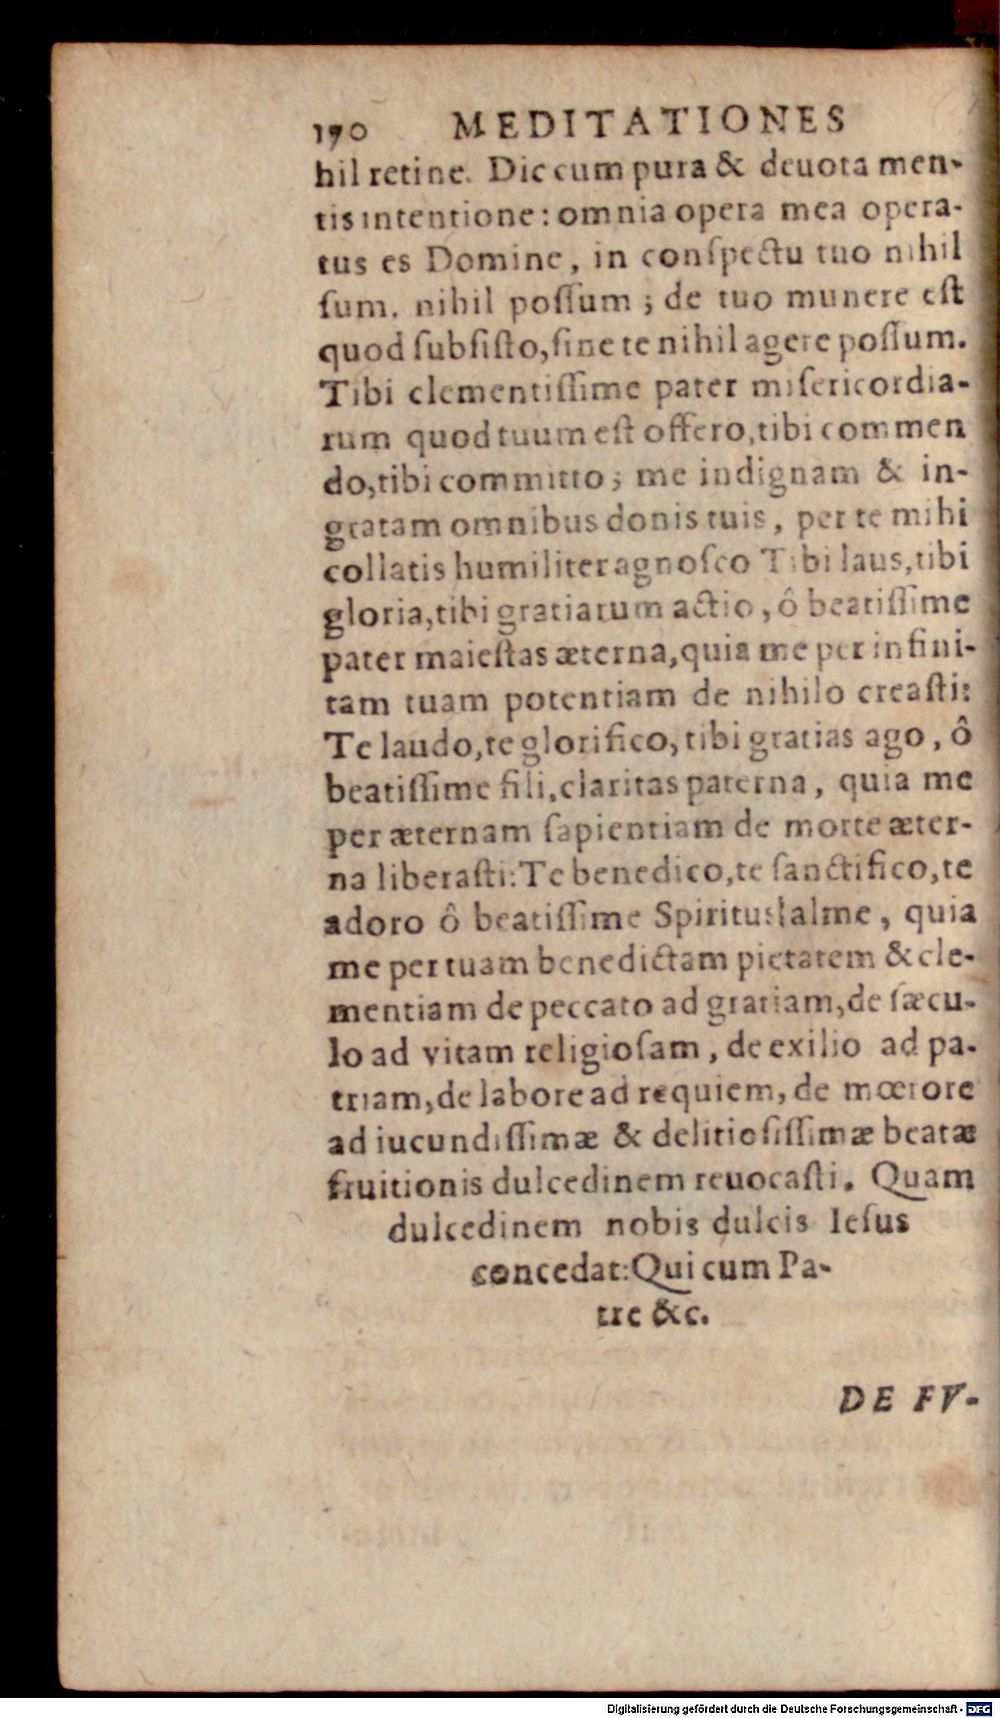 190 MEDITATIONES
hil retine. Dic cum pura & deuota men-
tis intentione: omnia opera mea opera-
tus es Domine, in conſpectu tuo nihil
ſum, nihil poſſum; de tuo munere eſt
quod ſubſiſto, ſine te nihil agere poſſum.
Tibi clementiſſime pater miſericordia-
rum quod tuum eſt offero, tibi commen
do, tibi committo; me indignam & in-
gratam omnibus donis tuis, per te mihi
collatis humiliter agnoſco Tibi laus, tibi
gloria, tibi gratiarum actio, ô beatiſſime
pater maieſtas æterna, quia me per infini-
tam tuam potentiam de nihilo creaſti:
Te laudo, te glorifico, tibi gratias ago, ô
beatiſſime fili, claritas paterna, quia me
per æternam ſapientiam de morte æter-
na liberaſti: Te benedico, te ſanctifico, te
adoro ô beatiſſime Spiritus alme, quia
me per tuam benedictam pietatem & cle-
mentiam de peccato ad gratiam, de ſæcu-
lo ad vitam religioſam, de exilio ad pa-
triam, de labore ad requiem, de mœrore
ad iucundiſſimæ & delitioſiſſimæ beatæ
fruitionis dulcedinem reuocaſti. Quam
dulcedinem nobis dulcis Ieſus
concedat: Qui cum Pa-
tre &c.
DE FV-
Digitalisierung gefördert durch die Deutsche Forschungsgemeinschaft - DFG